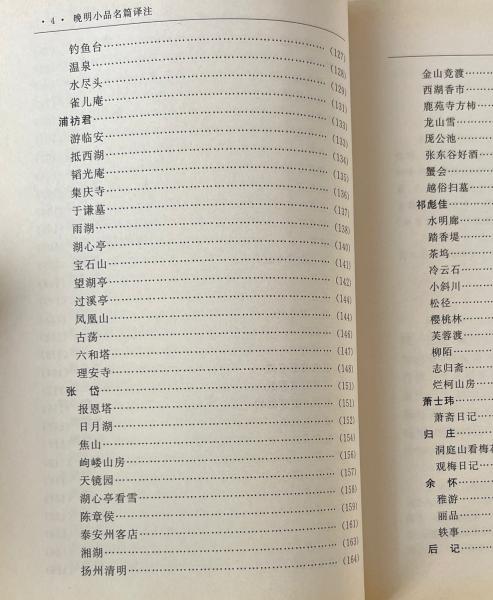 · 4 · 晚明小品名篇译注
钓鱼台……(127)
温泉……(128)
水尽头……(129)
雀儿庵……(131)
浦祊君……(133)
游临安……(133)
抵西湖……(134)
韬光庵……(135)
集庆寺……(136)
于谦墓……(137)
雨湖……(138)
湖心亭……(140)
宝石山……(141)
望湖亭……(142)
过溪亭……(144)
凤凰山……(144)
古荡……(146)
六和塔……(147)
理安寺……(148)
张 岱……(151)
报恩塔……(151)
日月湖……(152)
焦山……(154)
岣嵝山房……(156)
天镜园……(157)
湖心亭看雪……(158)
陈章侯……(159)
泰安州客店……(161)
湘湖……(163)
扬州清明……(164)
金山竞渡
西湖香市
鹿苑寺方柿
龙山雪
庞公池
张东谷好酒
蟹会
越俗扫墓
祁彪佳
水明廊
踏香堤
茶坞
冷云石
小斜川
松径
樱桃林
芙蓉渡
柳陌
志归斋
烂柯山房
萧士玮
萧斋日记
归 庄
洞庭山看梅花
观梅日记
余 怀
雅游
丽品
轶事
后 记